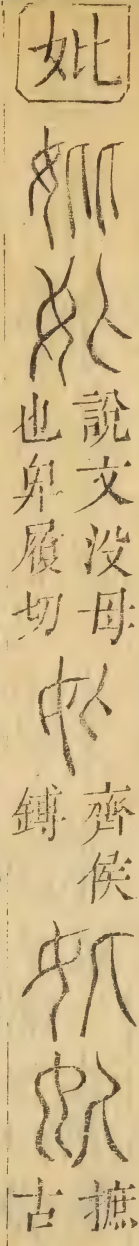 妣
說文没母
也卑履切
齊侯
鎛
摭
古